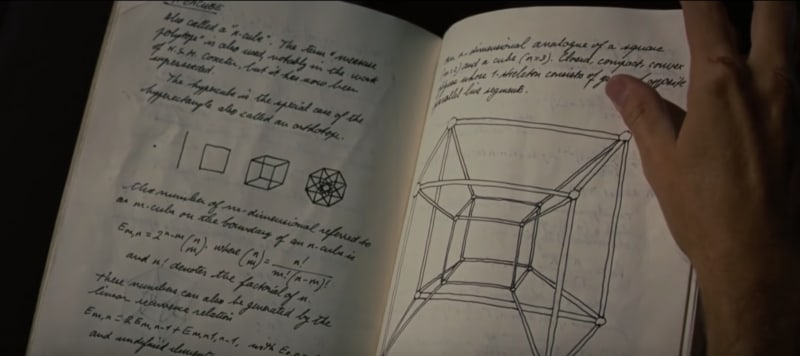 also called a "n-cube". The term "measure
polytope" is also used, notably in the work
of H.S.M. Coxeter, but it has now been
superseded.
The hypercube is the special case of the
hyperrectangle also called an orthotope.
The number of m-dimensional referred to
an m-cubes on the boundary of an n-cube is
Em,n = 2^n-m (n m), where (n m) = n! / m!(n-m)!
and n! denotes the factorial of n.
These numbers can also be generated by the
linear recurrence relation
Em,n = 2Em,n-1 + Em-1,n-1, with
and undefined
n-dimensional analogue of a square
(n=2) and a cube (n=3). Closed, compact, convex
figure whose 1-skeleton consists of opposite
parallel line segments.